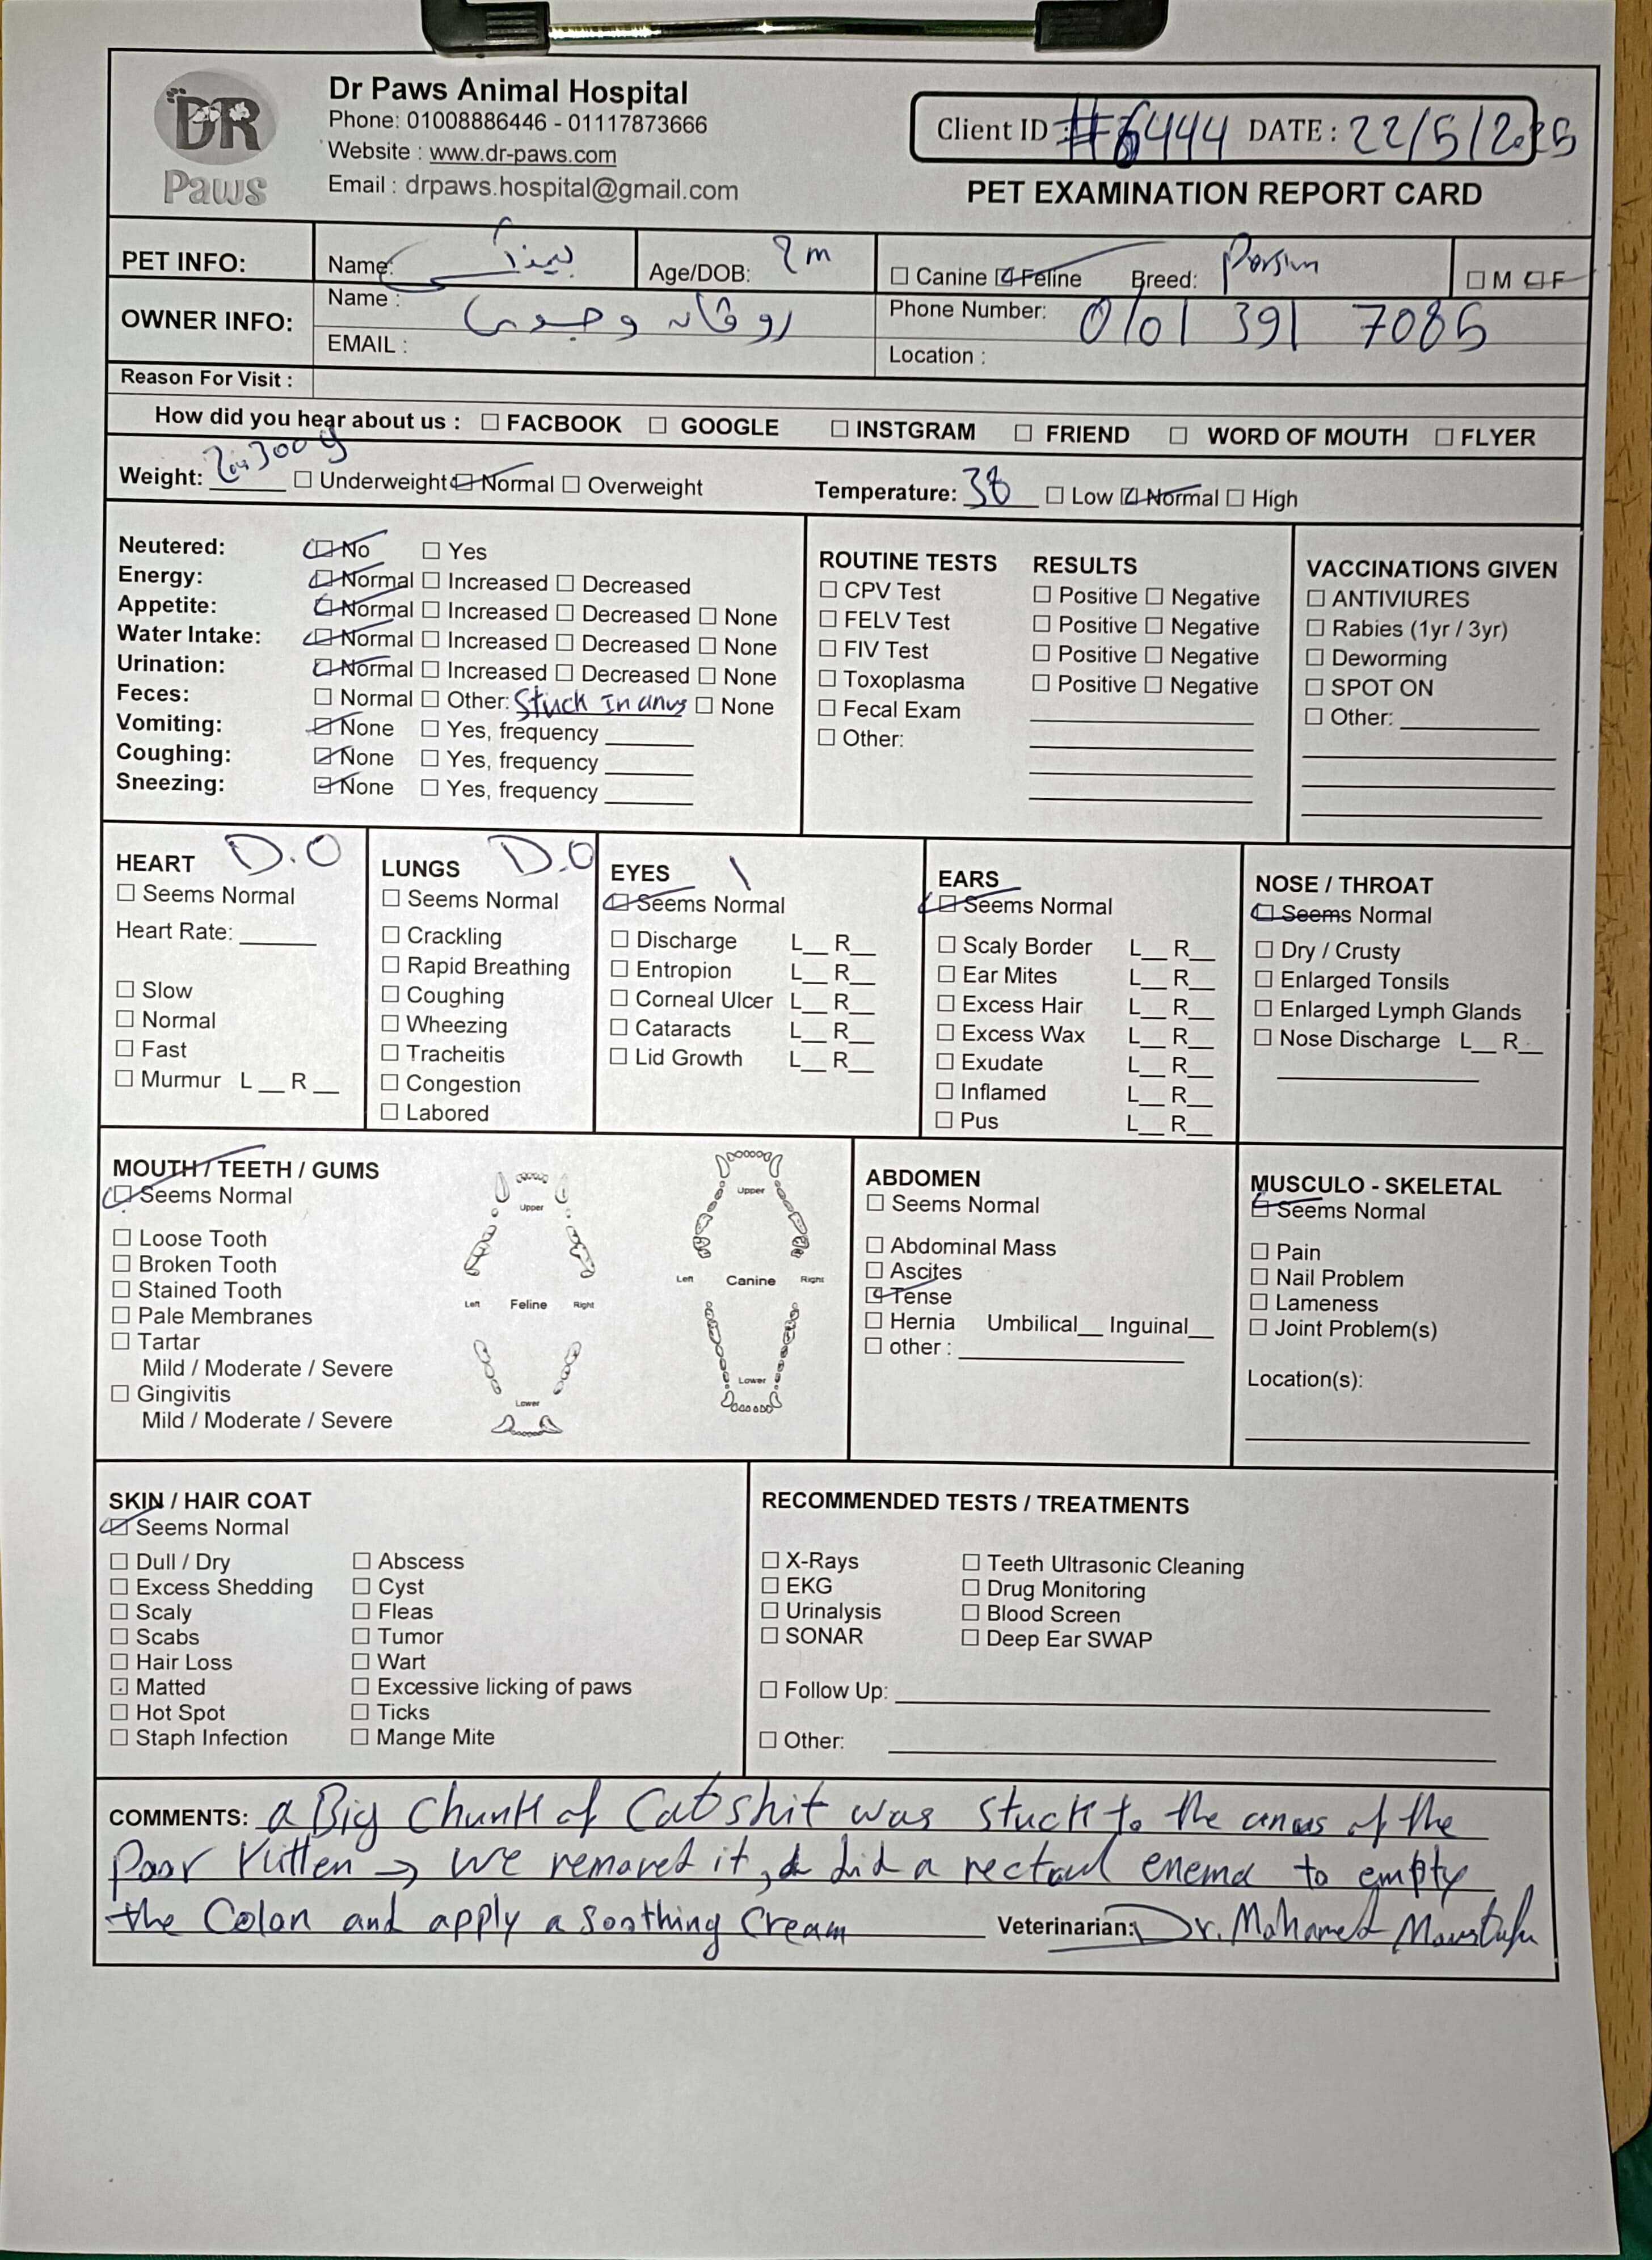 DR
Paws
Dr Paws Animal Hospital
Phone: 01008886446 - 01117873666
Website : www.dr-paws.com
Email : drpaws.hospital@gmail.com
Client ID : #6444 DATE : 22/5/2025
PET EXAMINATION REPORT CARD
PET INFO: Name: Age/DOB: 2m ☐ Canine ☑ Feline Breed: Persian ☐ M ☑ F
OWNER INFO: Name : Phone Number: 0101 391 7085
EMAIL : Location :
Reason For Visit :
How did you hear about us : ☐ FACBOOK ☐ GOOGLE ☐ INSTGRAM ☐ FRIEND ☐ WORD OF MOUTH ☐ FLYER
Weight: 300 g ☐ Underweight ☑ Normal ☐ Overweight Temperature: 38 ☐ Low ☑ Normal ☐ High
Neutered: ☑ No ☐ Yes
Energy: ☑ Normal ☐ Increased ☐ Decreased
Appetite: ☑ Normal ☐ Increased ☐ Decreased ☐ None
Water Intake: ☑ Normal ☐ Increased ☐ Decreased ☐ None
Urination: ☑ Normal ☐ Increased ☐ Decreased ☐ None
Feces: ☐ Normal ☐ Other: Stuck In anus ☐ None
Vomiting: ☑ None ☐ Yes, frequency
Coughing: ☑ None ☐ Yes, frequency
Sneezing: ☑ None ☐ Yes, frequency
ROUTINE TESTS RESULTS
☐ CPV Test ☐ Positive ☐ Negative
☐ FELV Test ☐ Positive ☐ Negative
☐ FIV Test ☐ Positive ☐ Negative
☐ Toxoplasma ☐ Positive ☐ Negative
☐ Fecal Exam
☐ Other:
VACCINATIONS GIVEN
☐ ANTIVIURES
☐ Rabies (1yr / 3yr)
☐ Deworming
☐ SPOT ON
☐ Other:
HEART D.O
☐ Seems Normal
Heart Rate:
☐ Slow
☐ Normal
☐ Fast
☐ Murmur L __ R __
LUNGS D.O
☐ Seems Normal
☐ Crackling
☐ Rapid Breathing
☐ Coughing
☐ Wheezing
☐ Tracheitis
☐ Congestion
☐ Labored
EYES
☑ Seems Normal
☐ Discharge L__ R__
☐ Entropion L__ R__
☐ Corneal Ulcer L__ R__
☐ Cataracts L__ R__
☐ Lid Growth L__ R__
EARS
☑ Seems Normal
☐ Scaly Border L__ R__
☐ Ear Mites L__ R__
☐ Excess Hair L__ R__
☐ Excess Wax L__ R__
☐ Exudate L__ R__
☐ Inflamed L__ R__
☐ Pus L__ R__
NOSE / THROAT
☑ Seems Normal
☐ Dry / Crusty
☐ Enlarged Tonsils
☐ Enlarged Lymph Glands
☐ Nose Discharge L__ R__
MOUTH / TEETH / GUMS
☑ Seems Normal
☐ Loose Tooth
☐ Broken Tooth
☐ Stained Tooth
☐ Pale Membranes
☐ Tartar
Mild / Moderate / Severe
☐ Gingivitis
Mild / Moderate / Severe
Upper
Left Feline Right
Lower
Upper
Left Canine Right
Lower
ABDOMEN
☐ Seems Normal
☐ Abdominal Mass
☐ Ascites
☑ Tense
☐ Hernia Umbilical__ Inguinal__
☐ other :
MUSCULO - SKELETAL
☑ Seems Normal
☐ Pain
☐ Nail Problem
☐ Lameness
☐ Joint Problem(s)
Location(s):
SKIN / HAIR COAT
☑ Seems Normal
☐ Dull / Dry ☐ Abscess
☐ Excess Shedding ☐ Cyst
☐ Scaly ☐ Fleas
☐ Scabs ☐ Tumor
☐ Hair Loss ☐ Wart
☐ Matted ☐ Excessive licking of paws
☐ Hot Spot ☐ Ticks
☐ Staph Infection ☐ Mange Mite
RECOMMENDED TESTS / TREATMENTS
☐ X-Rays ☐ Teeth Ultrasonic Cleaning
☐ EKG ☐ Drug Monitoring
☐ Urinalysis ☐ Blood Screen
☐ SONAR ☐ Deep Ear SWAP
☐ Follow Up:
☐ Other:
COMMENTS: a Big Chunk of Cat shit was stuck to the anus of the
Poor Kitten → we removed it, & did a rectal enema to empty
the Colon and apply a soothing Cream Veterinarian: Dr. Mohamed Moustafa